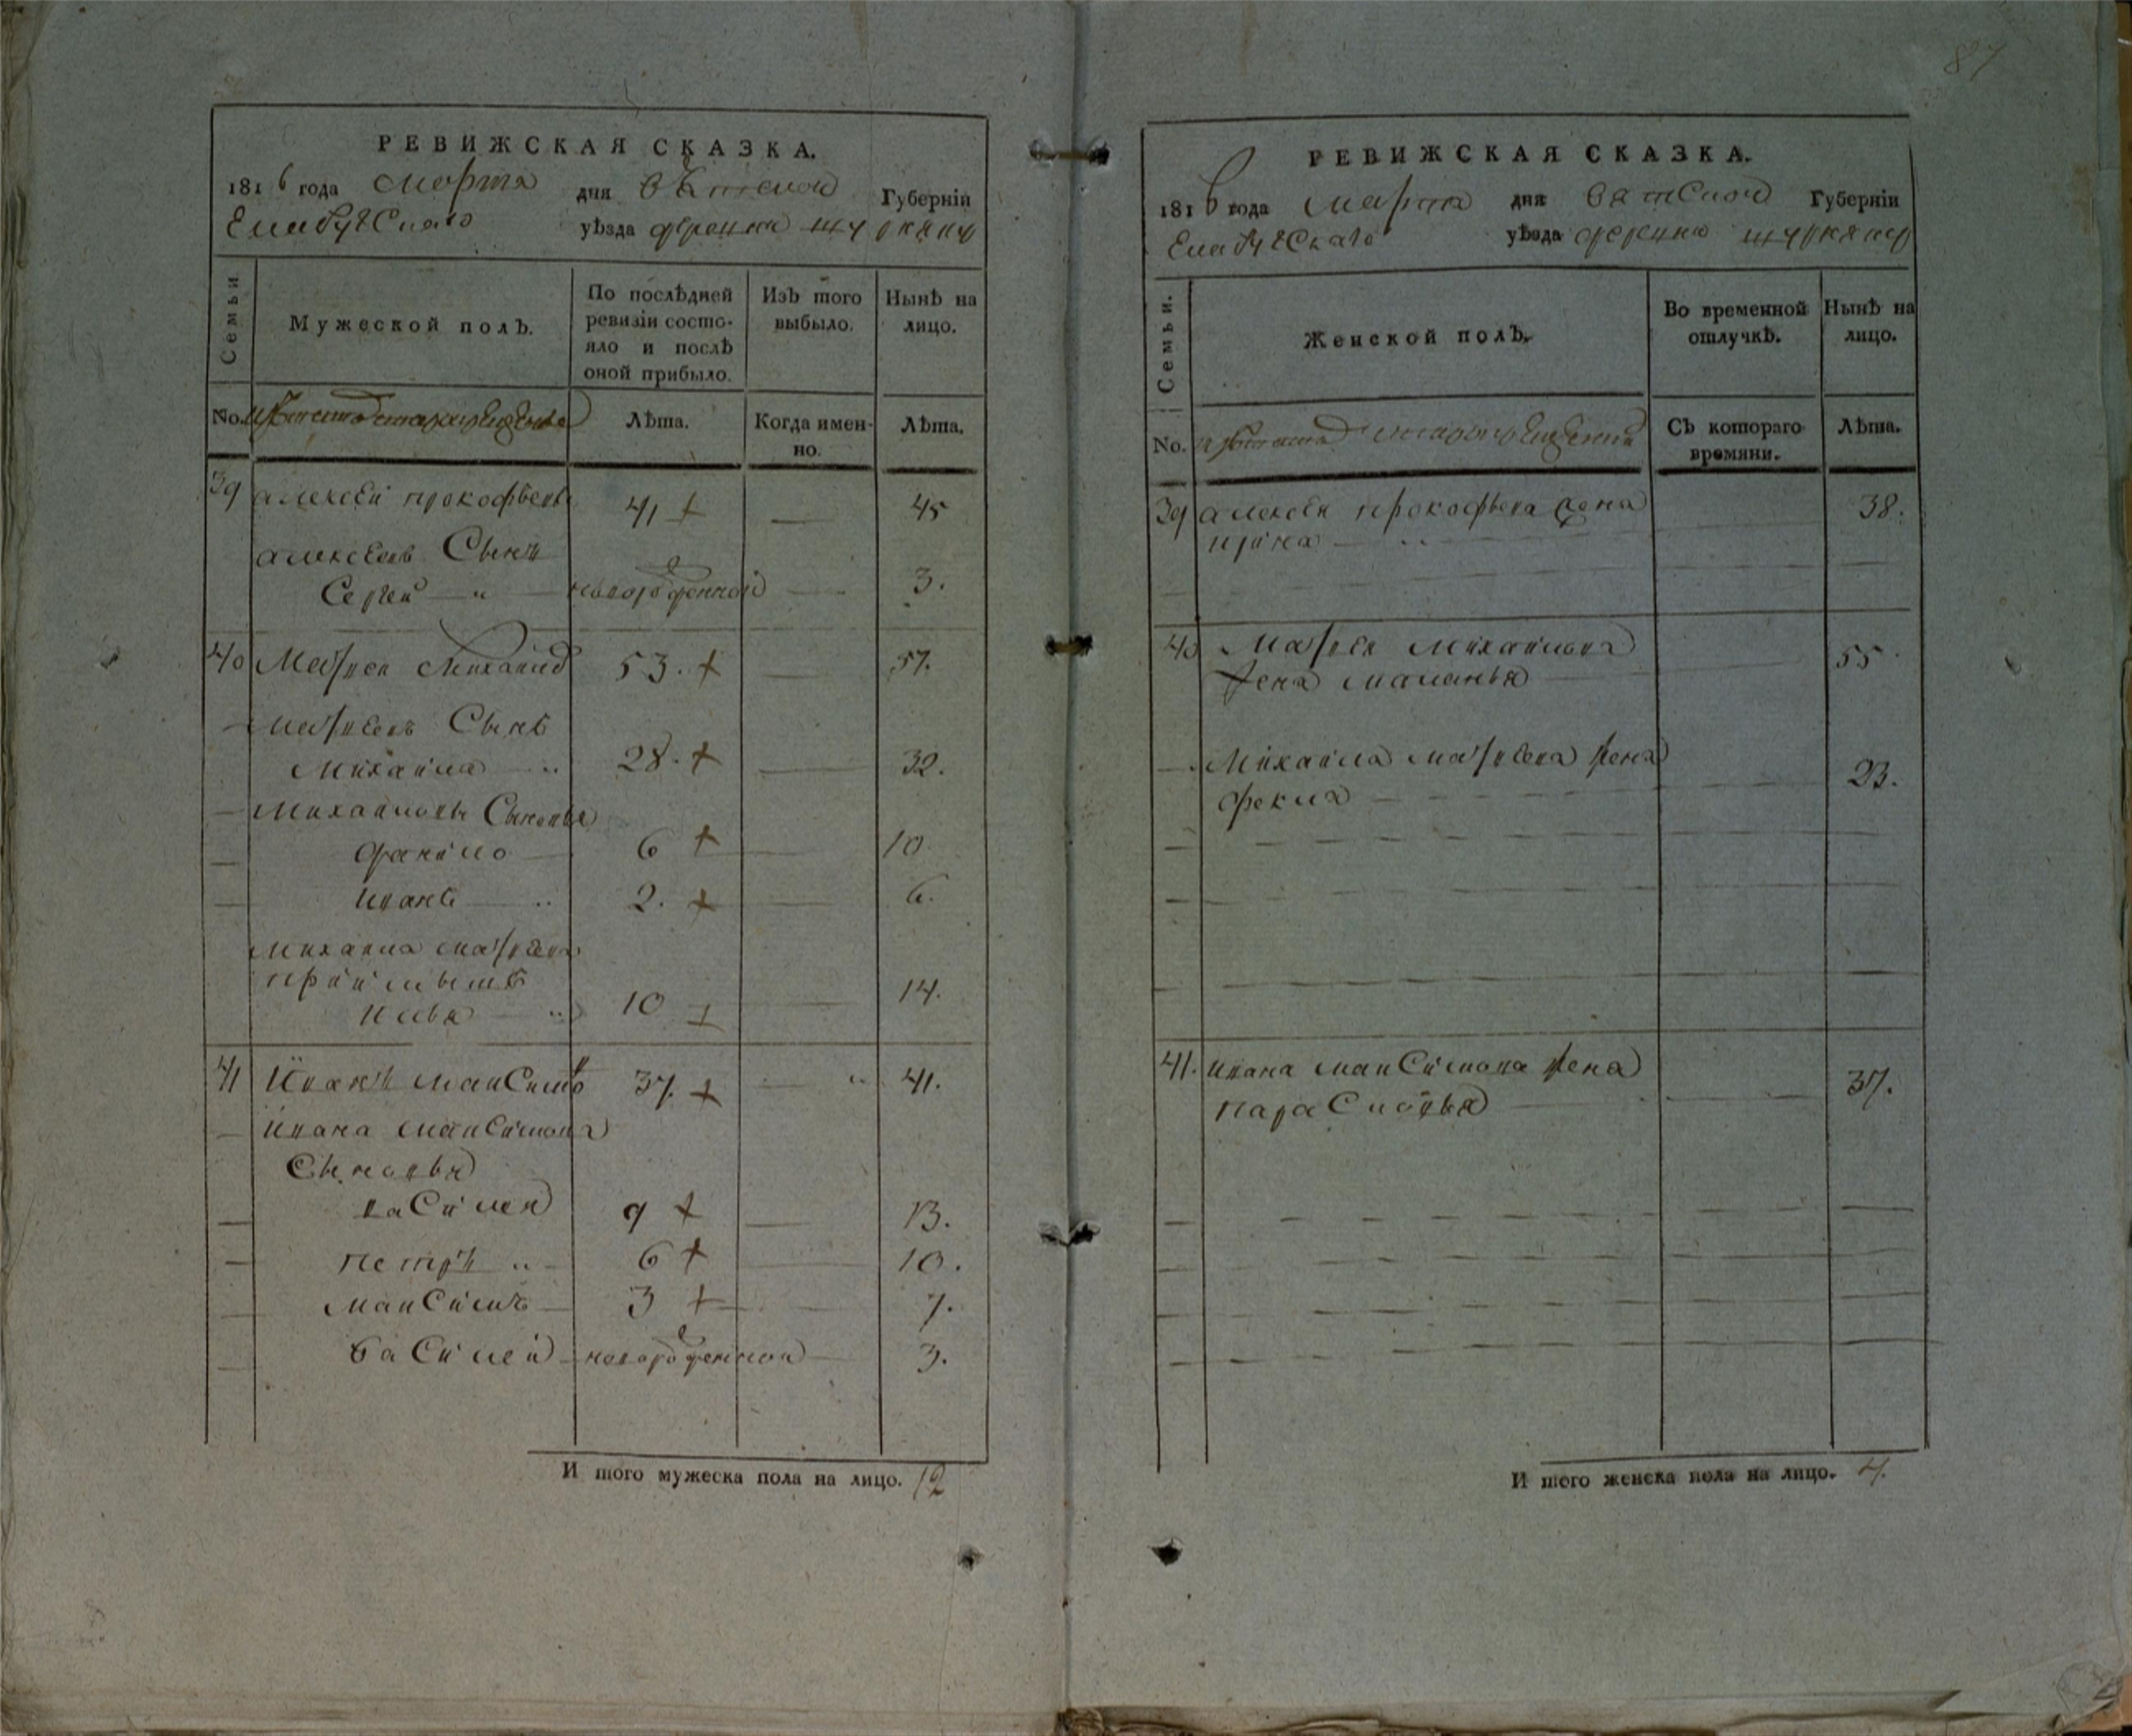 87
РЕВИЖСКАЯ СКАЗКА.
1816 года марта дня Вятской Губерніи
Елабужскаго уѣзда
Семьи
Мужеской полъ.
По послѣдней ревизіи состояло и послѣ оной прибыло.
Изъ того выбыло.
Нынѣ на лицо.
No.
Лѣта.
Когда именно.
Лѣта.
39 алексѣй прокофьевъ 41 + 45
алексѣевъ Сынъ
Сергей новорожденной 3.
40 Матвеи Михаиловъ 53. + 57.
матвѣевъ Сынъ
Михаила 28. + 32.
Михаиловы Сыновья
данило 6 + 10
иванъ 2. + 6.
михаила матвѣева
приимышъ
илья 10 + 14.
41 Иванъ максимовъ 37. + 41.
ивана максимова
Сыновья
василеи 9 + 13.
петръ 6 + 10.
максимъ 3 + 7.
василей новорожденнои 3.
И того мужеска пола на лицо. 12
РЕВИЖСКАЯ СКАЗКА.
1816 года марта дня вятской Губерніи
Елабужскаго уѣзда
Семьи.
Женской полъ.
Во временной отлучкѣ.
Нынѣ на лицо.
No.
Съ котораго времяни.
Лѣта.
39 алексѣя прокофьева жена 38.
ирина
40 матвѣя михаилова 55
жена маланья
Михаила матвѣева жена 23.
фекла
41. ивана максимова жена 37.
парасковья
И того женска пола на лицо. 4.